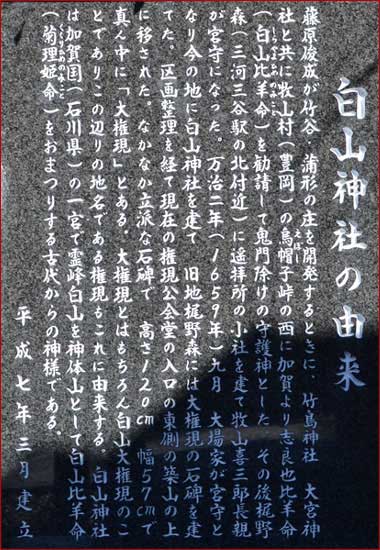 白山神社の由来
藤原俊成が竹谷、蒲形の庄を開発するときに、竹島神社 大宮神
社と共に牧山村(豊岡)の烏帽子峠の西に加賀より志良也比羊命
えぼし
(白山比羊命)を勧請して鬼門除けの守護神とした その後梶野
しらやまひめのみこと
森(三河三谷駅の北付近)に遥拝所の小社を建て牧山喜三郎長親
が宮守になった。万治二年(1659年)九月 大場家が宮守と
なり今の地に白山神社を建て 旧地梶野森には大権現の石碑を建
てた。区画整理を経て現在の権現公会堂の入口の東側の築山の上
に移された。なかなか立派な石碑で 高さ120cm 幅57cmで
真ん中に「大権現」とある。大権現とはもちろん白山大権現のこ
とでありこの辺りの地名である権現もこれに由来する。白山神社
は加賀国(石川県)の一宮で霊峰白山を神体山として白山比羊命
(菊理姫命)をおまつりする古代からの神様である。
くくりひめのみこと
平成七年三月建立